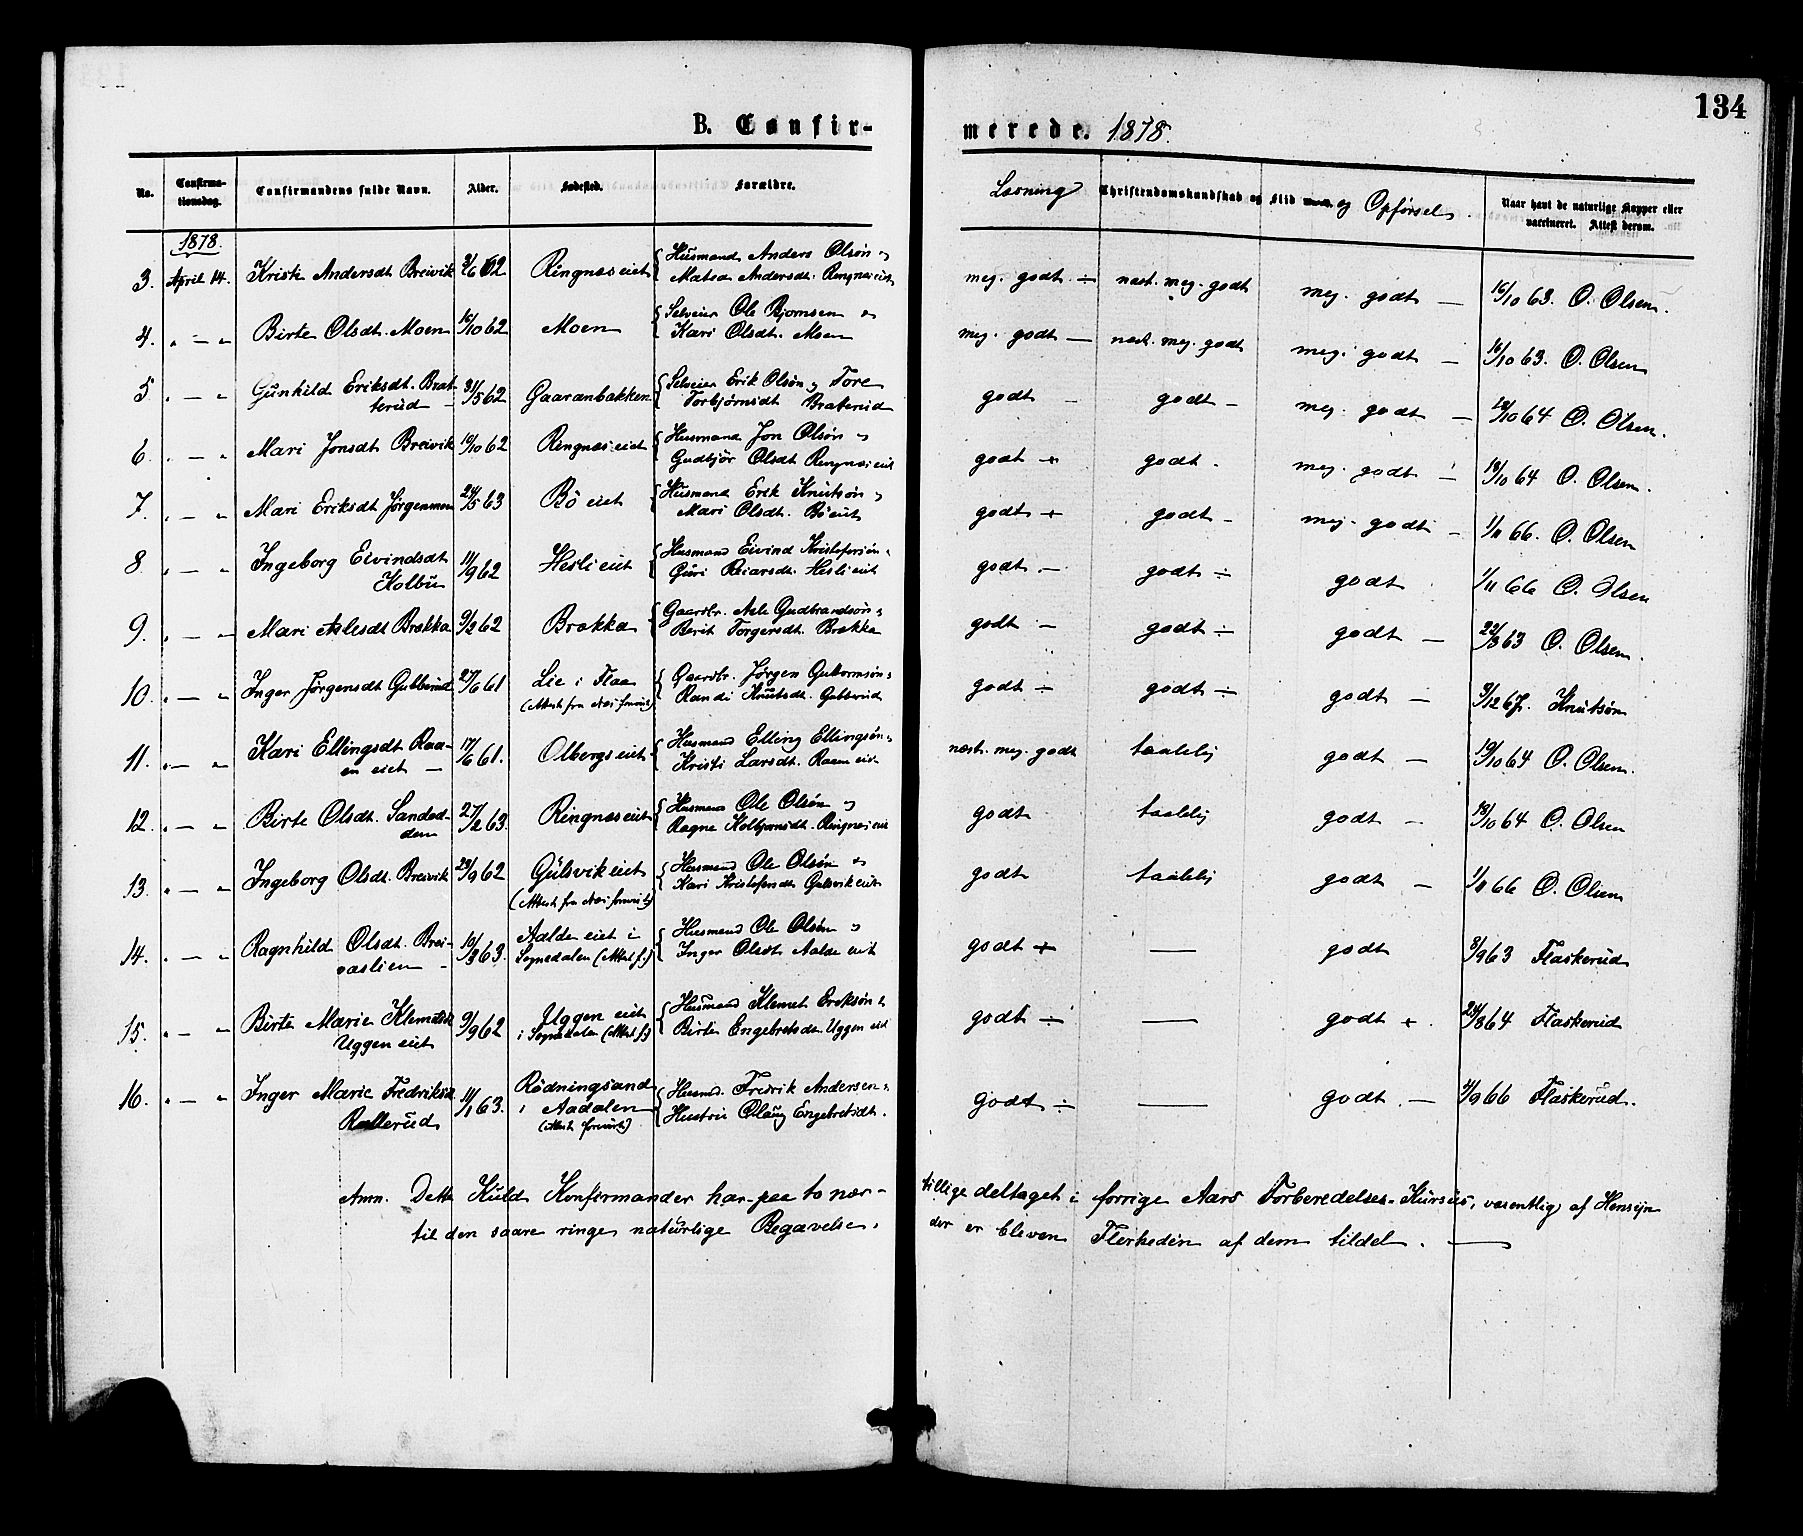 134
B. Confir-
merede. 1878.
No.
Confirma-
tionsdag.
Confirmandens fulde Navn.
Alder.
Fødested.
Forældre.
Læsning
Christendomskundskab og Flid og Opførsel.
Naar havt de naturlige Kopper eller
vaccineret. Attest derom.
1878.
3. April 14. Kristi Andersdt Breivik 2/6 62 Ringnæs eiet { Husmand Anders Olsøn og
Andersdt. Ringnæs eiet
meg. godt ÷ næst. meg. godt meg. godt — 16/10 63. O. Olsen.
4. " — " Birte Olsdt. Moen 16/10 62 Moen { Selveier Ole Bjørnsen og
Kari Olsdt. Moen
meg. godt — næst. meg. godt meg. godt — 16/10 63. O. Olsen
5 " — " Gunhild Eriksdt. Brat-
terud — 31/5 62 Gaaranbakken { Selveier Erik Olsøn og Tore
Torbjørnsdt Braterud
godt — godt — meg. godt — 19/10 64 O. Olsen.
6. " — " Mari Jonsdt Breivik 19/10 62 Ringnæs eiet { Husmand Jon Olsøn og
Gudbjør Olsdt Ringnæs eiet
godt + godt. meg. godt — 19/10 64 O. Olsen.
7. " — " Mari Eriksdt Jørgenmoen 24/5 63 Bö eiet { Husmand Erik Knutsøn og
Mari Olsdt. Bö eiet
godt + godt — meg. godt — 1/11 66. O. Olsen
8 " — " Ingeborg Eivindsdt
Kolbu 11/9 62 Hesli eiet { Husmand Eivind Kristofersøn
Guri Reiarsdt. Hesli eiet
godt — godt ÷ godt 1/11 66 O. Olsen
9. " — " Mari Aslesdt Brakka 9/2 62 Brakka { Gaardbr. Asle Gudbrandsøn
Berit Torgersdt. Brakka
godt — godt ÷ godt — 22/8 63 O. Olsen.
10. " — " Inger Jørgensdt Gulberud 27/6 61 Lie i Flaa { Gaardbr. Jørgen Gutormsøn
(Attest fra Næs forevist) Randi Knutsdt. Gulberud
godt ÷ godt ÷ godt — 9/12 67. Knutsøn
11. " — " Kari Ellingsdt Raa-
en eiet — 17/6 61. Olbergs eiet { Husmand Elling Ellingsøn
Kristi Larsdt. Raaen eiet
næst. meg. godt taalelig godt — 19/10 64 O. Olsen.
12. " — " Birte Olsdt. Sandod-
den 27/2 63. Ringnæs eiet { Husmand Ole Olsøn og
Ragne Kolbjørnsdt. Ringnæs eiet
godt taalelig godt — 19/10 64 O. Olsen
13. " — " Ingeborg Olsdt. Breivik 29/9 62 Gulsvik eiet { Husmand Ole Olsøn og
(Attest fra Næs forevist) Kari Kristofersdt Gulsvik eiet
godt taalelig godt — 1/11 66 O. Olsen
14. " — " Ragnhild Olsdt. Brei-
vaslien — 10/3 63. Aalde eiet i
Sognedalen (Attest f.) { Husmand Ole Olsøn og
Inger Olsdt Aalde eiet
godt + — godt 8/9 63 Flaskerud
15. " — " Birte Marie Klemetsdt
Uggen eiet 9/9 62 Uggen eiet
i Sognedalen (Attest f.) { Husmand Klemet Eriksøn
Birte Engebretsdtr Uggen eiet
godt ÷ — godt + 28/8 64 Flaskerud
16. " — " Inger Marie Fredriksdt.
Rallerud 11/1 63. Rødningsand
i Aadalen
(Attest forevist) { Husmd. Fredrik Andersen
Hustru Olaug Engebretsdt.
godt ÷ — godt — 2/9 66 Flaskerud.
Anm. Dette Kuld Konfirmander har paa to nær tillige deltaget i forrige Aars Forberedelses-Kursus, væsentlig af Hensyn
til den saare ringe naturlige Begavelse, der er bleven Flerheden af dem tildel. —